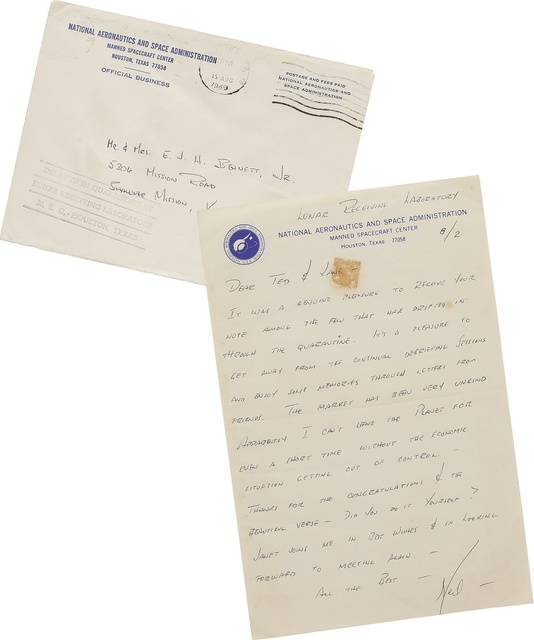 NATIONAL AERONAUTICS AND SPACE ADMINISTRATION
MANNED SPACECRAFT CENTER
HOUSTON, TEXAS 77058
OFFICIAL BUSINESS
PM
15 AUG
1969
POSTAGE AND FEES PAID
NATIONAL AERONAUTICS AND
SPACE ADMINISTRATION
MR. & MRS. E. J. H. BENNETT, JR.
5306 MISSION ROAD
MISSION, K
IN
LUNAR RECEIVING LABORATORY
M.S.C., HOUSTON, TEXAS
LUNAR RECEIVING LABORATORY
NATIONAL AERONAUTICS AND SPACE ADMINISTRATION
MANNED SPACECRAFT CENTER
HOUSTON, TEXAS 77058
8/2
DEAR TED & JANE -
IT WAS A GENUINE PLEASURE TO RECEIVE YOUR
NOTE AMONG THE FEW THAT HAD DRIFTED IN
THROUGH THE QUARANTINE. IT'S A PLEASURE TO
GET AWAY FROM THE CONTINUAL DEBRIEFING SESSIONS
AND ENJOY SOME MEMORIES THROUGH LETTERS FROM
FRIENDS. THE MARKET HAS BEEN VERY UNKIND
APPARENTLY I CAN'T LEAVE THE PLANET FOR
EVEN A SHORT TIME WITHOUT THE ECONOMIC
SITUATION GETTING OUT OF CONTROL. -
THANKS FOR THE CONGRATULATIONS & THE
BEAUTIFUL VERSE - DID YOU DO IT YOURSELF?
JANET JOINS ME IN BEST WISHES & IN LOOKING
FORWARD TO MEETING AGAIN. -
ALL THE BEST -
Neil -